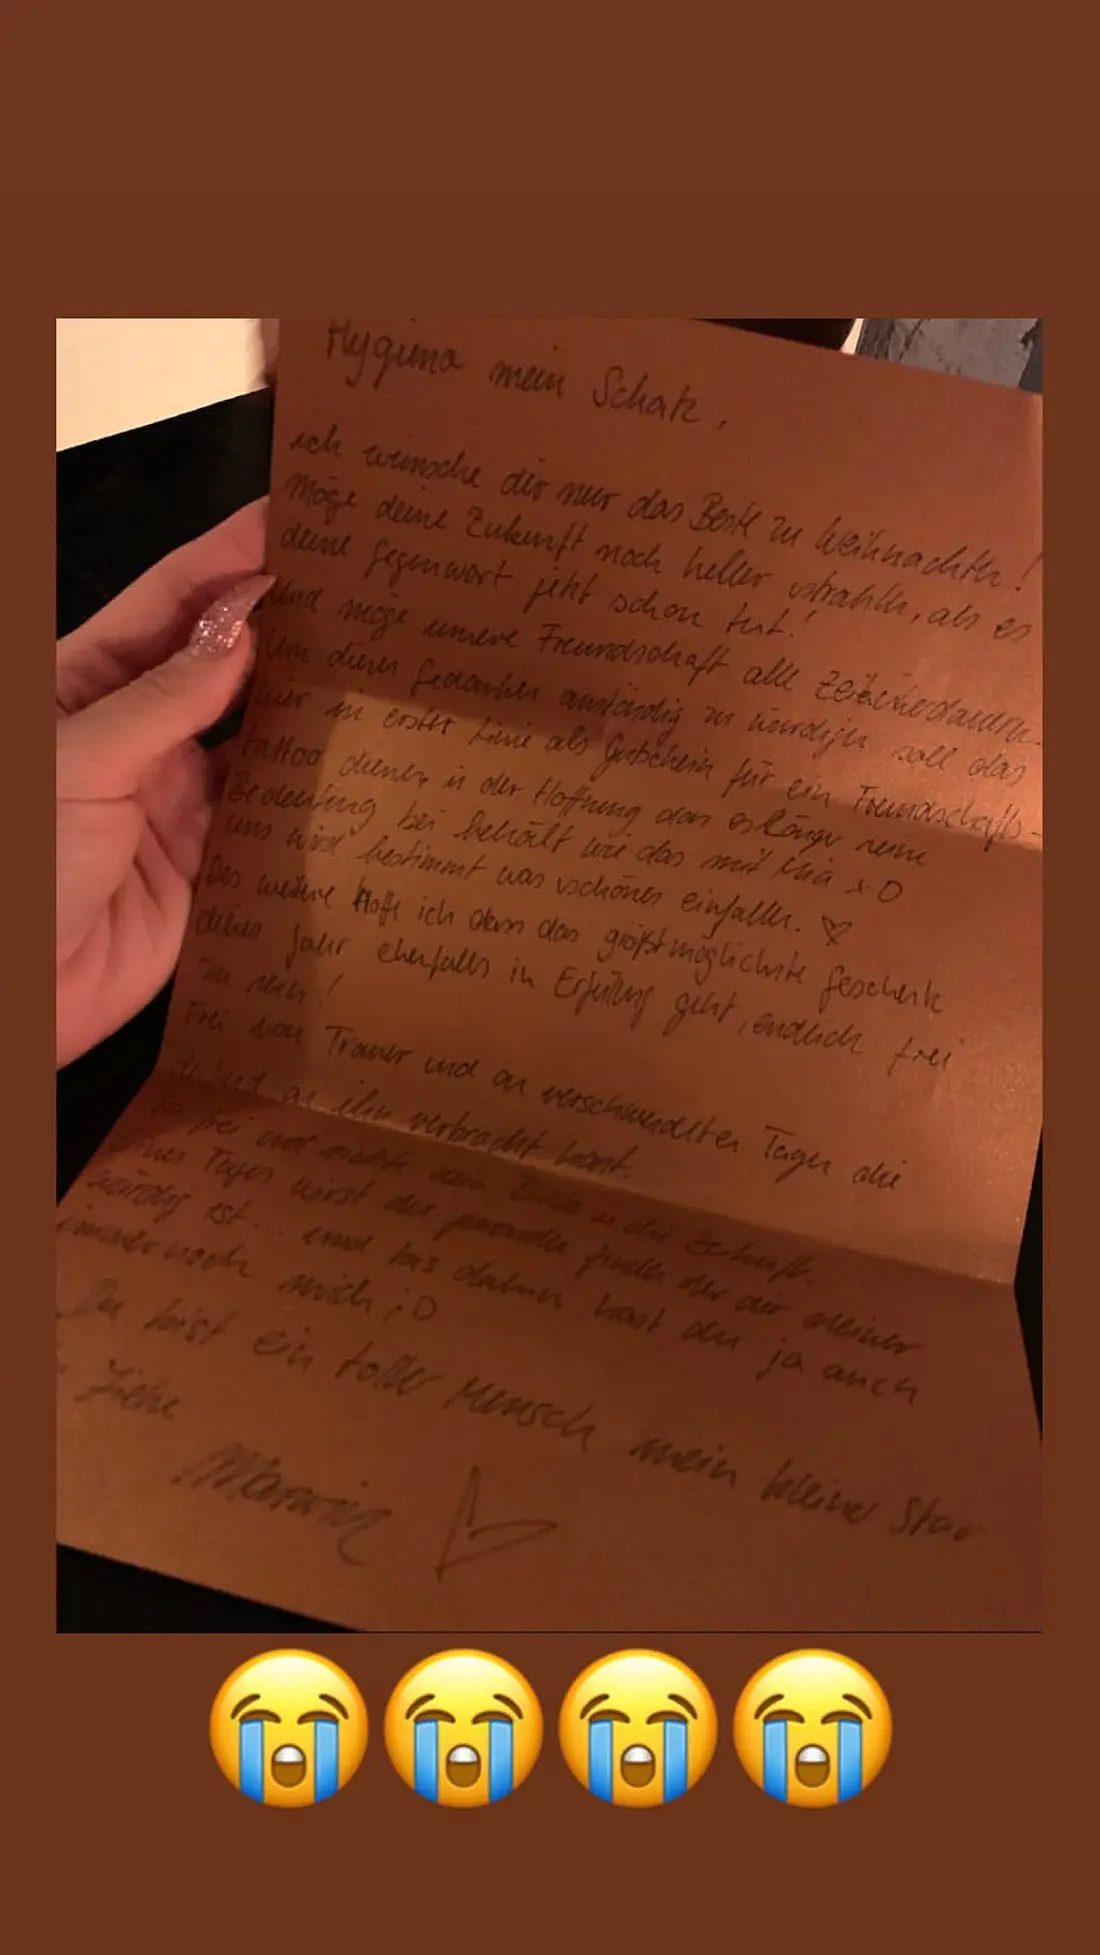 mein Schatz,
ich wünsche dir nur das Beste zu Weihnachten!
Möge deine Zukunft noch heller strahlen, als es
deine Gegenwart jetzt schon tut!
Und möge unsere Freundschaft alle
Um diesen Gedanken anständig zu würdigen soll das
hier in erster Linie als Gutschein für ein Freundschafts-
tattoo dienen, in der Hoffnung dass es länger seine
Bedeutung bei behält wie das mit Mia xD
uns wird bestimmt was schönes einfallen. ♡
Des weitere Hoffe ich dass das größtmöglichste Geschenk
dieses Jahr ebenfalls in Erfüllung geht, endlich frei
zu sein!
Frei von Trauer und an verschwendeten Tagen die
du an ihn verbracht hast.
frei und dein Blick in die Zukunft.
eines Tages wirst du jemanden finden der dir deiner
würdig ist... und bis dahin hast du ja auch
immernoch mich ;D
Du bist ein toller Mensch mein kleiner Star
Liebe
♡
😭😭😭😭